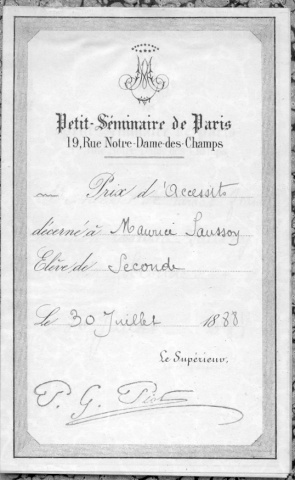 Petit-Séminaire de Paris
19, Rue Notre-Dame-des-Champs
Prix d'Accessits
décerné à Maurice Saussoy
Elève de Seconde
Le 30 Juillet 1888
Le Supérieur,
P. G.